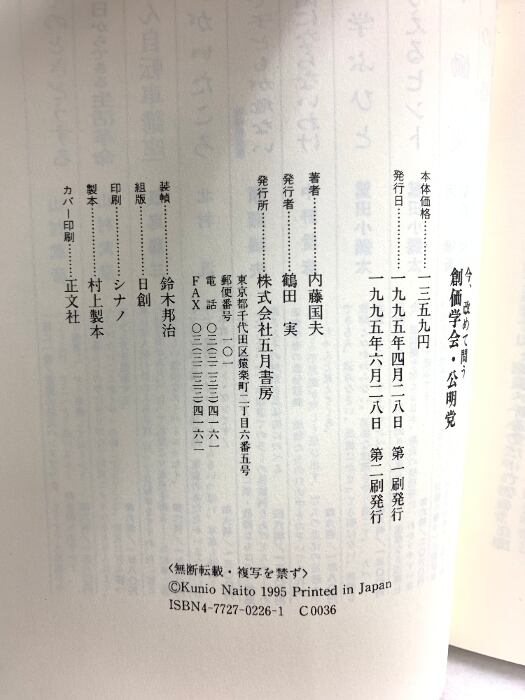 今、改めて問う
創価学会・公明党
本体価格……一三五九円
発行日……一九九五年四月二八日　第一刷発行
一九九五年六月二八日　第二刷発行
著者……内藤国夫
発行者……鶴田　実
発行所……株式会社五月書房
東京都千代田区猿楽町二丁目六番五号
郵便番号　一〇一
電　話　〇三(三二三三)四一六一
ＦＡＸ　〇三(三二三三)四一六二
装幀……鈴木邦治
組版……日創
印刷……シナノ
製本……村上製本
カバー印刷……正文社
〈無断転載・複写を禁ず〉
©Kunio Naito 1995 Printed in Japan
ISBN4-7727-0226-1　C0036